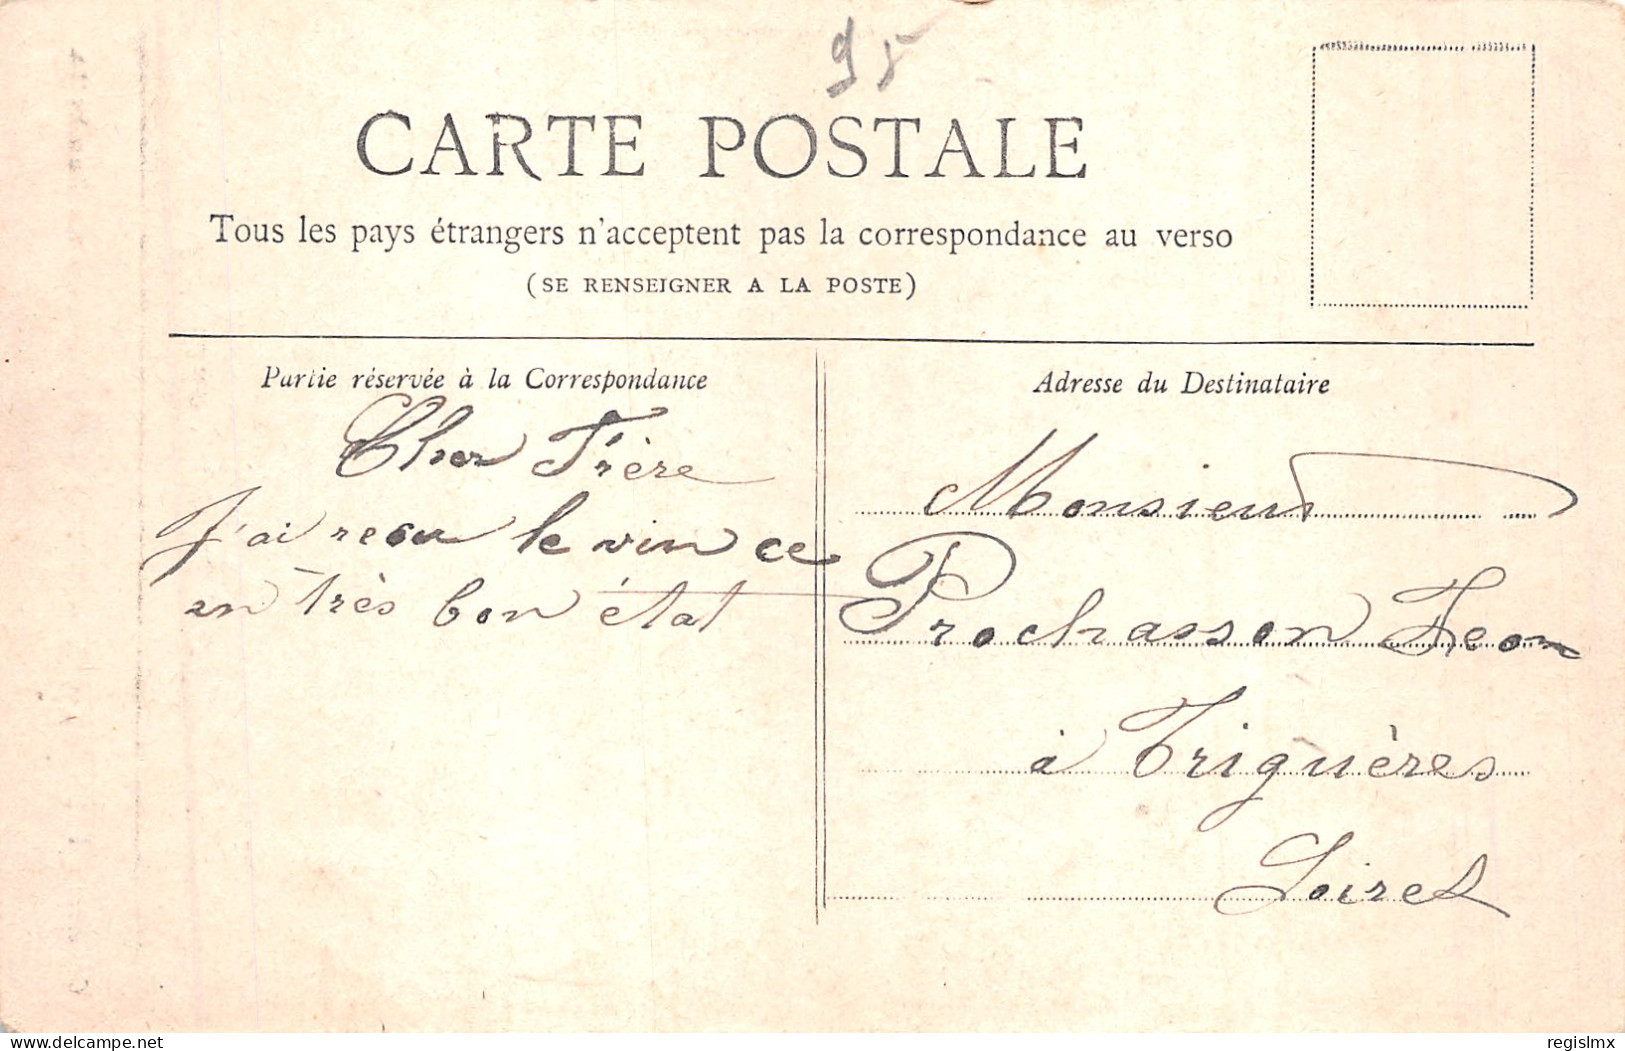 95
CARTE POSTALE
Tous les pays étrangers n'acceptent pas la correspondance au verso
(SE RENSEIGNER A LA POSTE)
Partie réservée à la Correspondance
Cher Frère
J'ai recu le vin ce
en très bon état
Adresse du Destinataire
Monsieur
Prochasson Leon
à Triguères
Loiret
delcampe.net
regislmx